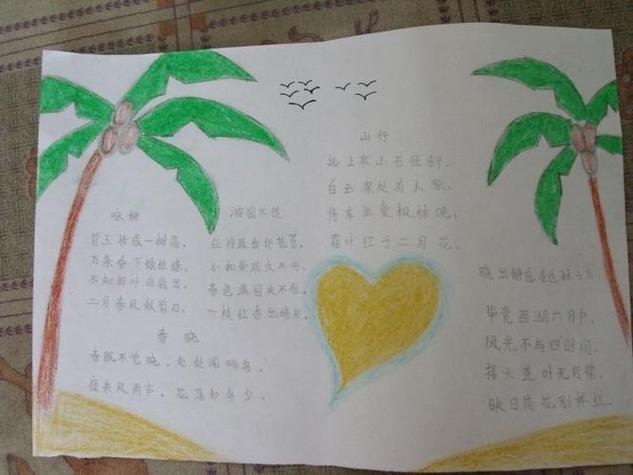 咏柳
碧玉妆成一树高，
万条垂下绿丝绦。
不知细叶谁裁出，
二月春风似剪刀。
游园不值
应怜屐齿印苍苔，
小扣柴扉久不开。
春色满园关不住，
一枝红杏出墙来。
春晓
春眠不觉晓，处处闻啼鸟，
夜来风雨声，花落知多少。
山行
远上寒山石径斜，
白云深处有人家。
停车坐爱枫林晚，
霜叶红于二月花。
晓出静慈寺送林子方
毕竟西湖六月中，
风光不与四时同，
接天莲叶无穷碧，
映日荷花别样红。